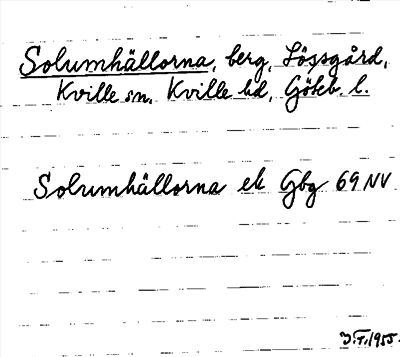 Solumhällorna, berg, Lössgård,
Kville sn, Kville hd, Göteb. l.
Solumhällorna ek Gbg 69 NV
J.F. 1955.